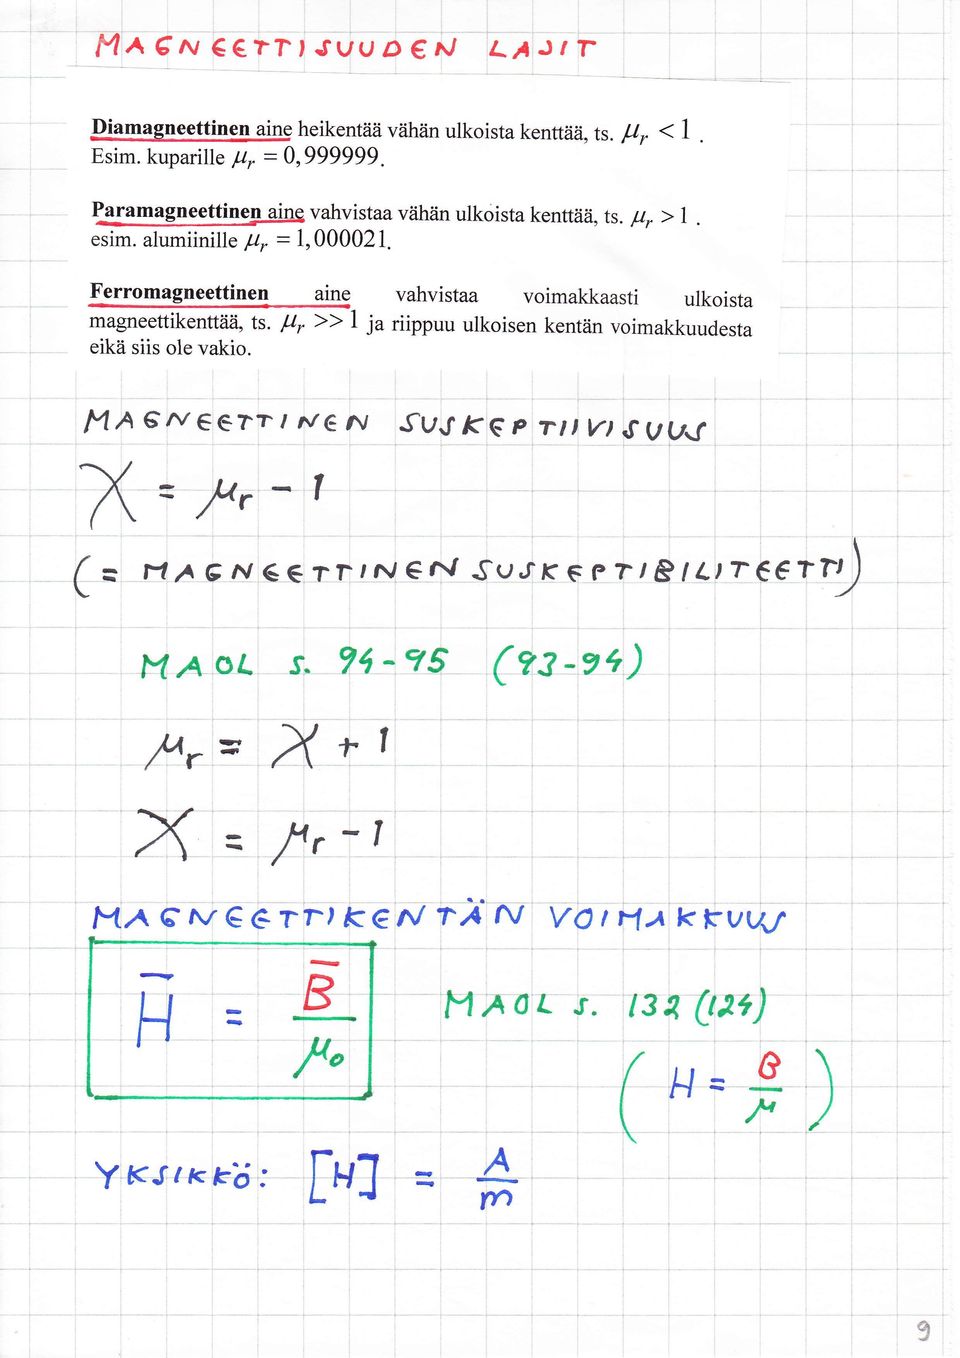 MAGNEETTISUUDEN LAJIT
Diamagneettinen aine heikentää vähän ulkoista kenttää, ts. μr < 1 .
Esim. kuparille μr = 0,999999.
Paramagneettinen aine vahvistaa vähän ulkoista kenttää, ts. μr > 1 .
esim. alumiinille μr = 1,000021.
Ferromagneettinen aine vahvistaa voimakkaasti ulkoista
magneettikenttää, ts. μr >> 1 ja riippuu ulkoisen kentän voimakkuudesta
eikä siis ole vakio.
MAGNEETTINEN SUSKEPTIIVISUUS
X = μr - 1
(= MAGNEETTINEN SUSKEPTIBILITEETTI)
MAOL s. 94-95 (93-94)
μr = X + 1
X = μr - 1
MAGNEETTIKENTÄN VOIMAKKUUS
H̄ = B̄ / μ0
MAOL s. 132 (124)
(H = B / μ)
YKSIKKÖ: [H] = A / m
9